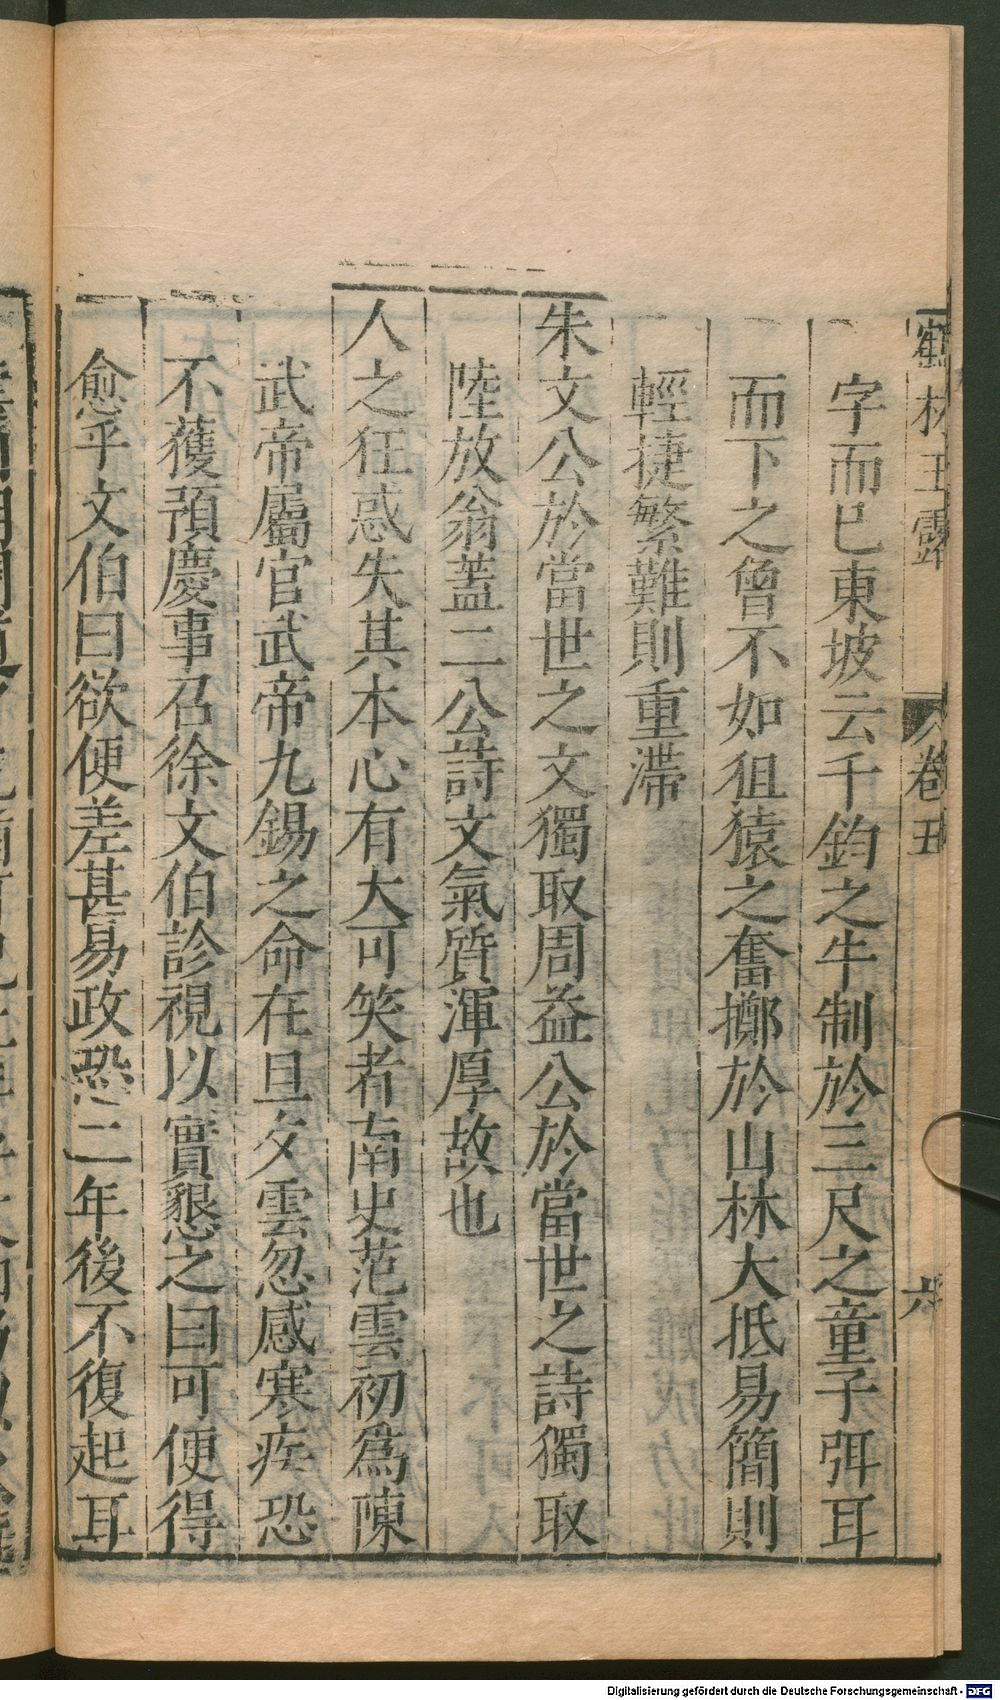 鶴林玉露 卷五 六
字而巳東坡云千鈞之牛制於三尺之童子弭耳
而下之曾不如狙猿之奮擲於山林大抵易簡則
輕捷繁難則重滯
朱文公於當世之文獨取周益公於當世之詩獨取
陸放翁蓋二公詩文氣質渾厚故也
人之狂惑失其本心有大可笑者南史范雲初爲陳
武帝屬官武帝九錫之命在旦夕雲忽感寒疾恐
不獲預慶事召徐文伯診視以實懇之曰可便得
愈乎文伯曰欲便差甚易政恐二年後不復起耳
Digitalisierung gefördert durch die Deutsche Forschungsgemeinschaft - DFG